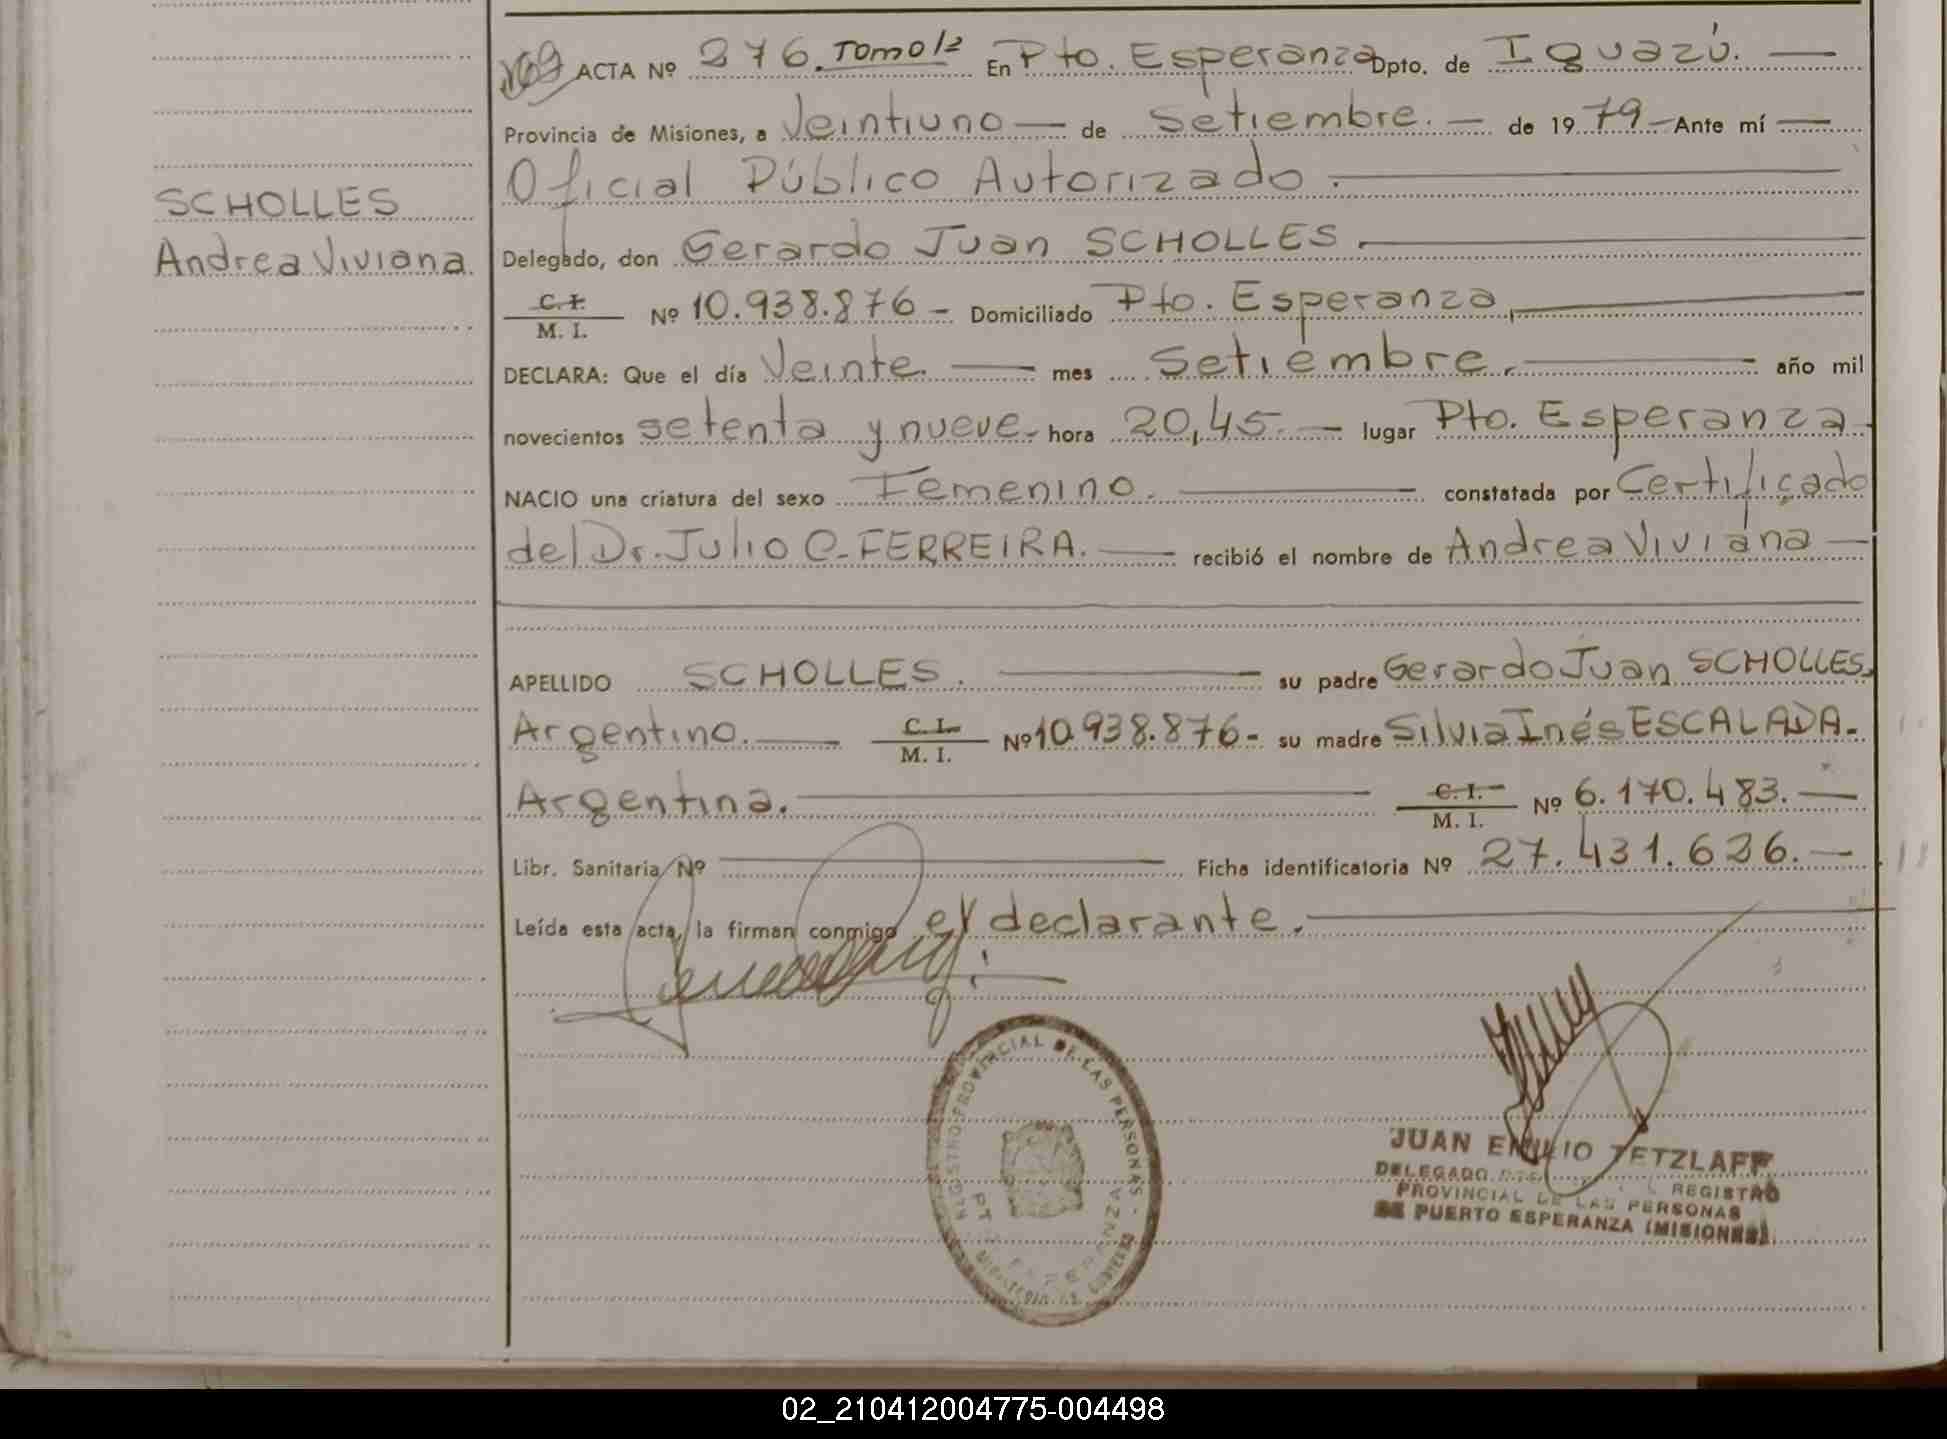 169 ACTA Nº 276. Tomo 1º En Pto. Esperanza Dpto. de Iguazú. —
Provincia de Misiones, a Veintiuno — de Setiembre. — de 1979 — Ante mí —
Oficial Público Autorizado.
SCHOLLES
Andrea Viviana
Delegado, don Gerardo Juan SCHOLLES.
C. I. / M. I. Nº 10.938.876 - Domiciliado Pto. Esperanza,
DECLARA: Que el día Veinte. — mes Setiembre. — año mil
novecientos setenta y nueve - hora 20,45. — lugar Pto. Esperanza -
NACIO una criatura del sexo Femenino. — constatada por Certificado
del Dr. Julio C. FERREIRA. — recibió el nombre de Andrea Viviana —
APELLIDO SCHOLLES. — su padre Gerardo Juan SCHOLLES.
Argentino. — C. I. / M. I. Nº 10.938.876 - su madre Silvia Inés ESCALADA -
Argentina. — C. I. / M. I. Nº 6.170.483. —
Libr. Sanitaria Nº — Ficha identificatoria Nº 27.431.636. —
Leída esta acta, la firman conmigo el declarante.
REGISTRO PROVINCIAL DE LAS PERSONAS -
ESPERANZA
JUAN EMILIO TETZLAFF
DELEGADO REGISTRO
PROVINCIAL DE LAS PERSONAS
DE PUERTO ESPERANZA (MISIONES)
02_210412004775-004498